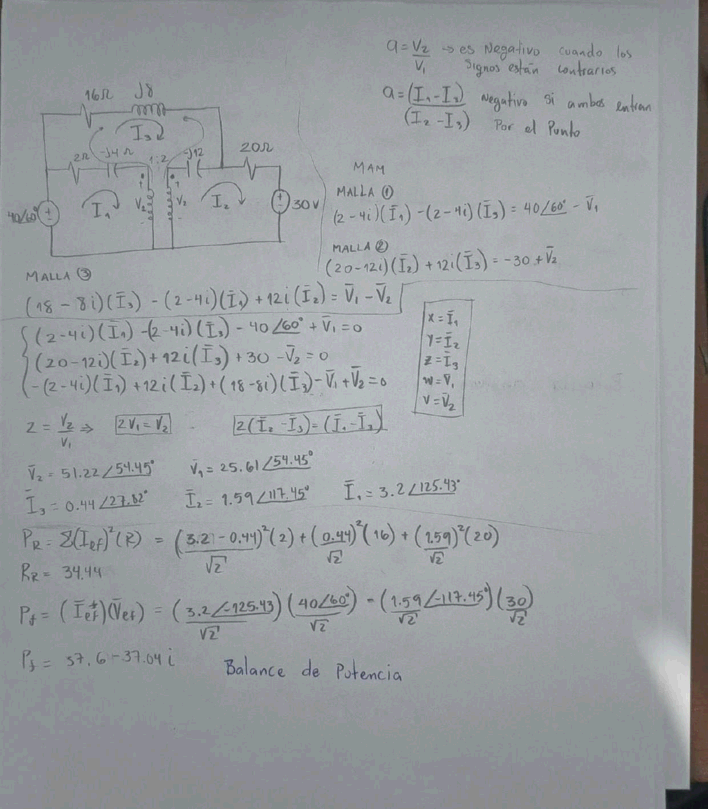 a = V₂/V₁ → es Negativo cuando los signos están contrarios
a = (I₁ - I₃)/(I₂ - I₃) Negativo si ambos entran Por el Punto
16Ω J8
I₃
2Ω -j4Ω 1:2 -j12 20Ω
40∠60° I₁ V₂ V₂ I₂ 30V
MAM
MALLA ①
(2-4i)(Ī₁) - (2-4i)(Ī₃) = 40∠60° - V̄₁
MALLA ②
(20-12i)(Ī₂) + 12i(Ī₃) = -30 + V̄₂
MALLA ③
(18-8i)(Ī₃) - (2-4i)(Ī₁) + 12i(Ī₂) = V̄₁ - V̄₂
(2-4i)(Ī₁) - (2-4i)(Ī₃) - 40∠60° + V̄₁ = 0
(20-12i)(Ī₂) + 12i(Ī₃) + 30 - V̄₂ = 0
-(2-4i)(Ī₁) + 12i(Ī₂) + (18-8i)(Ī₃) - V̄₁ + V̄₂ = 0
X = Ī₁
Y = Ī₂
Z = Ī₃
W = V̄₁
V = V̄₂
2 = V₂/V₁ ⇒ 2V₁ = V₂ 2(Ī₂ - Ī₃) = (Ī₁ - Ī₃)
V̄₂ = 51.22∠54.45° V̄₁ = 25.61∠54.45°
Ī₃ = 0.44∠27.82° Ī₂ = 1.59∠117.45° Ī₁ = 3.2∠125.43°
P_R = Σ(I_ef)²(R) = ((3.2 - 0.44)/√2)²(2) + (0.44/√2)²(16) + (1.59/√2)²(20)
P_R = 34.44
P_f = (Ī*_ef)(V̄_ef) = (3.2∠-125.43/√2)(40∠60°/√2) - (1.59∠-117.45°/√2)(30/√2)
P_f = 37.6 - 37.04i
Balance de Potencia